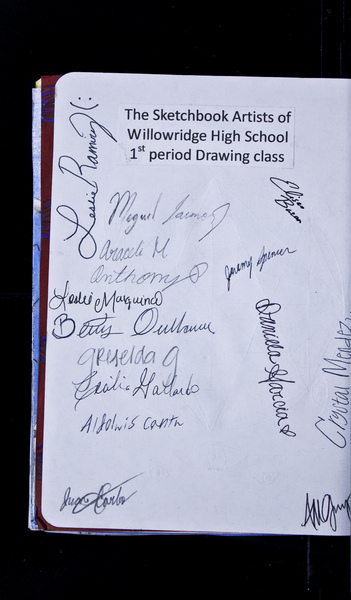 The Sketchbook Artists of
Willowridge High School
1st period Drawing class
Leslie Ramirez (:
Miguel
Araceli M
Anthony
Leslie Marquina
Betty
Griselda G
Cecilia Gallardo
Aldolvis Cantu
Jeremy Spencer
Daniela Garcia
Crystal Mendez